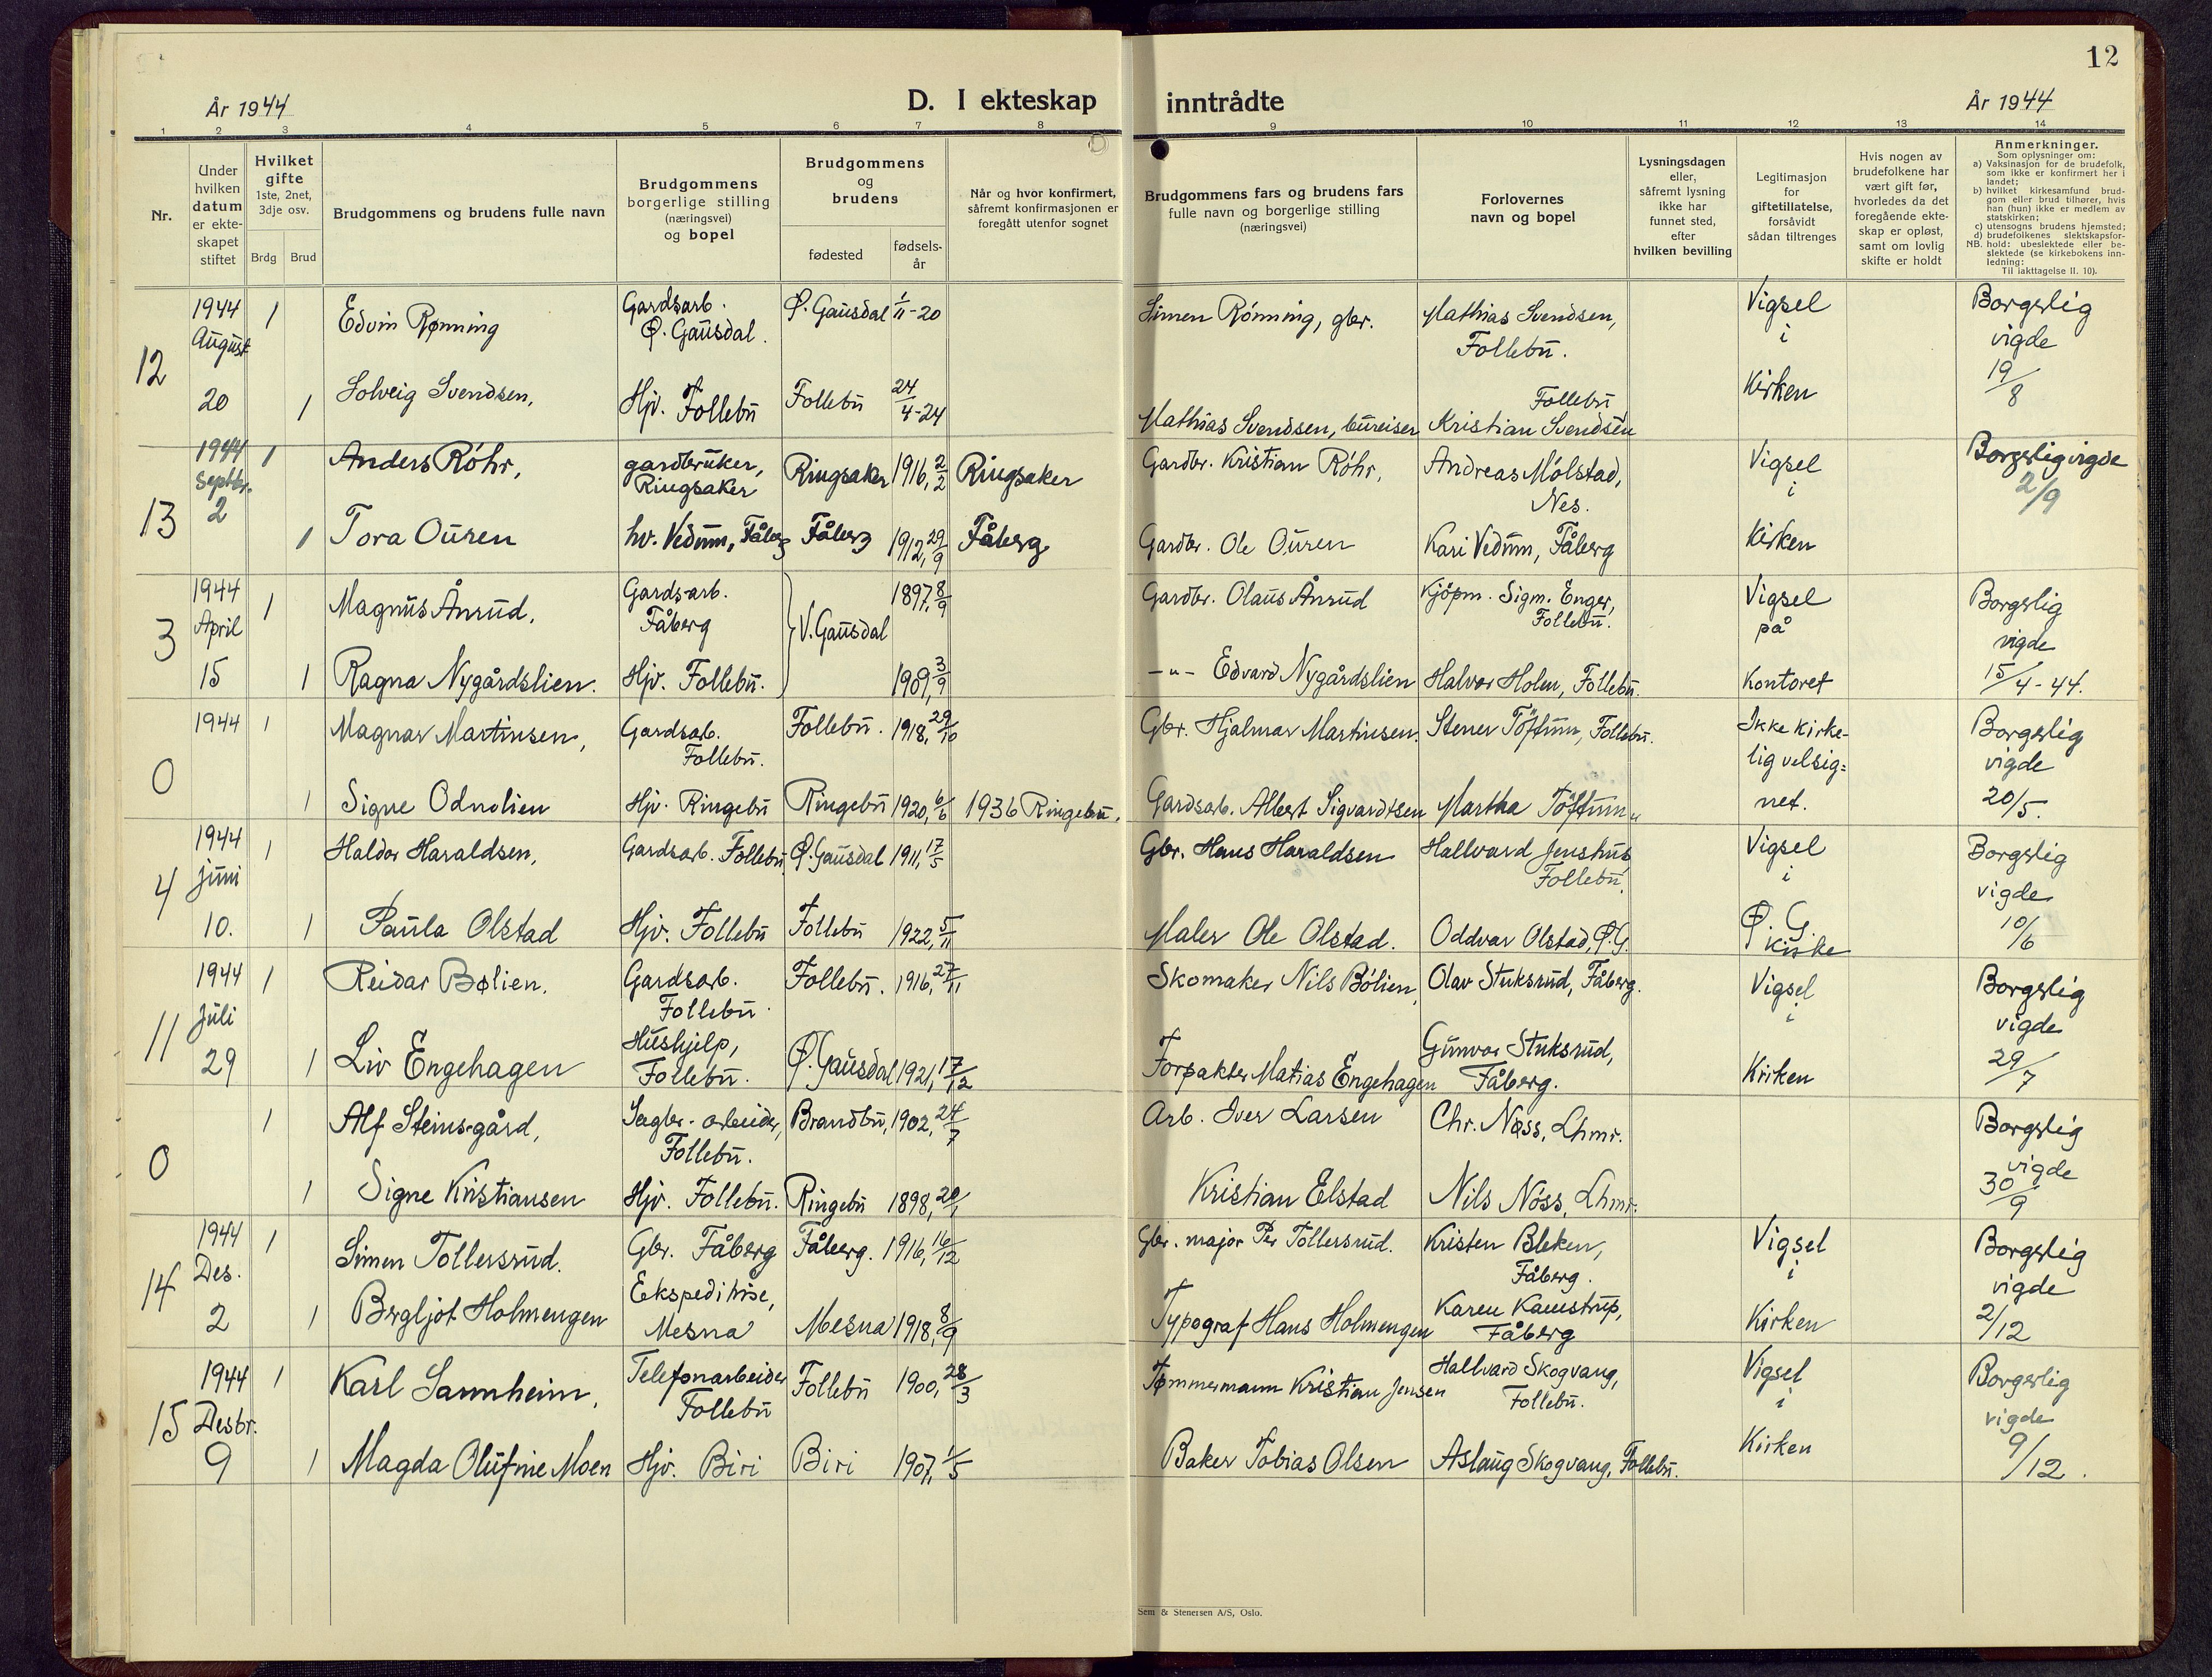 12
År 1944
D. I ekteskap inntrådte
År 1944
1 2 3 4 5 6 7 8 9 10 11 12 13 14
Nr.
Under
hvilken
datum
er ekte-
skapet
stiftet
Hvilket
gifte
1ste, 2net,
3dje osv.
Brdg Brud
Brudgommens og brudens fulle navn
Brudgommens
borgerlige stilling
(næringsvei)
og bopel
Brudgommens
og
brudens
fødested
fødsels-
år
Når og hvor konfirmert,
såfremt konfirmasjonen er
foregått utenfor sognet
Brudgommens fars og brudens fars
fulle navn og borgerlige stilling
(næringsvei)
Forlovernes
navn og bopel
Lysningsdagen
eller,
såfremt lysning
ikke har
funnet sted,
efter
hvilken bevilling
Legitimasjon
for
giftetillatelse,
forsåvidt
sådan tiltrenges
Hvis nogen av
brudefolkene har
vært gift før,
hvorledes da det
foregående ekte-
skap er opløst,
samt om lovlig
skifte er holdt
Anmerkninger.
Som oplysninger om:
a) Vaksinasjon for de brudefolk,
som ikke er konfirmert her i
landet;
b) hvilket kirkesamfund brud-
gom eller brud tilhører, hvis
han (hun) ikke er medlem av
statskirken;
c) utensogns brudens hjemsted;
d) brudefolkenes slektskapsfor-
NB. hold: ubeslektede eller be-
slektede (se kirkebokens inn-
ledning:
Til iakttagelse II. 10).
12
1944
August
20
1
Edvin Rønning
Gardsarb.
Ø. Gausdal.
Ø. Gausdal 1/11-20
Simen Rönning, gbr.
Mathias Svendsen,
Follebu.
Vigsel
i
Kirken
Borgerlig
vigde
19/8
1
Solveig Svendsen,
Hjv. Follebu
Follebu 24/4-24
Mathias Svendsen, bureiser
Follebu
Kristian Svendsen
13
1944
Septbr.
2
1
Anders Röhr,
gardbruker,
Ringsaker
Ringsaker 1916, 2/2 Ringsaker
Gardbr. Kristian Röhr,
Andreas Mölstad,
Nes.
Vigsel
i
Kirken
Borgerlig vigde
2/9
1
Tora Ouren
hv. Vedum, Fåberg
Fåberg 1912, 29/9 Fåberg
Gardbr. Ole Ouren
Kari Vedum, Fåberg
3
1944
April
15
1
Magnus Ånrud,
Gardsarb.
Fåberg
V. Gausdal
1897, 8/9
Gardbr. Olaus Ånrud
Kjöpm. Sigm. Enger,
Follebu.
Vigsel
på
Kontoret
Borgerlig
vigde
15/4-44.
1
Ragna Nygårdslien.
Hjv. Follebu.
1909, 3/9
-"- Edvard Nygårdslien
Halvor Holen, Follebu.
0
1944
1
Magnar Martinsen,
Gardsarb.
Follebu.
Follebu. 1918, 29/10
Gbr. Hjalmar Martinsen.
Stener Töftum, Follebu.
Ikke kirke-
lig velsig=
net.
Borgerlig
vigde
20/5.
1
Signe Odnolien
Hjv. Ringebu
Ringebu 1920, 6/6 1936 Ringebu.
Gardsarb. Albert Sigvardtsen
Martha Töftum "
4
1944
Juni
10.
1
Haldor Haraldsen,
Gardsarb. Follebu
Ø. Gausdal 1911, 17/5
Gbr. Hans Haraldsen
Hallvard Jenshus,
Follebu.
Vigsel
i
Ø. G.
kirke
Borgerlig
vigde
10/6
1
Paula Olstad
Hjv. Follebu
Follebu 1922, 5/11
Maler Ole Olstad.
Oddvar Olstad, Ø.G.
11
1944
Juli
29
1
Reidar Bølien.
Gardsarb.
Follebu.
Follebu. 1916, 27/11
Skomaker Nils Bölien,
Olav Stuksrud, Fåberg.
Vigsel
i
Kirken
Borgerlig
vigde
29/7
1
Liv Engehagen
Hushjelp,
Follebu.
Ø. Gausdal 1921, 17/12
Forpakter Matias Engehagen
Gunvor Stuksrud,
Fåberg.
0
1
Alf Steinsgård,
Sagbr.-arbeider,
Follebu.
Brandbu, 1902, 24/7
Arb. Iver Larsen
Chr. Næss, Lhmr.
Borgerlig
vigde
30/9
1
Signe Kristiansen
Hjv. Follebu.
Ringebu 1898, 20/1
Kristian Elstad
Nils Nöss, Lhmr.
14
1944
Des.
2
1
Simen Tollersrud.
Gbr. Fåberg
Fåberg. 1916, 16/12
Gbr. major Per Tollersrud.
Kristen Bleken,
Fåberg.
Vigsel
i
Kirken
Borgerlig
vigde
2/12
1
Bergljot Holmengen
Ekspeditrise,
Mesna
Mesna 1918, 8/9
Typograf Hans Holmengen
Karen Kamstrup,
Fåberg
15
1944
Desbr.
9
1
Karl Sannheim,
Telefonarbeider
Follebu
Follebu 1900, 28/3
Tømmermann Kristian Jensen
Hallvard Skogvang,
Follebu.
Vigsel
i
Kirken
Borgerlig
vigde
9/12.
1
Magda Olufine Moen
Hjv. Biri
Biri 1907, 1/5
Baker Tobias Olsen
Aslaug Skogvang, Follebu.
Sem & Stenersen A/S, Oslo.